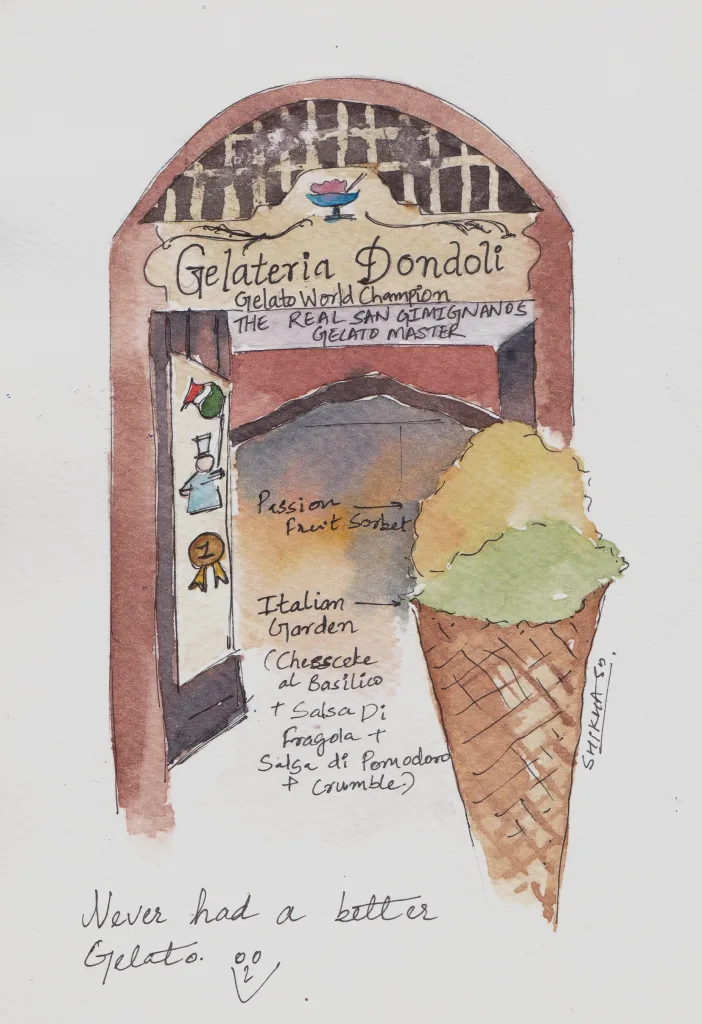 Gelateria Dondoli
Gelato World Champion
THE REAL SAN GIMIGNANOS
GELATO MASTER
1
Passion
Fruit Sorbet
Italian
Garden
(Chesscke
al Basilico
+ Salsa Di
Fragola +
Salsa di Pomodoro
+ Crumble.)
SHIKHA SD.
Never had a better
Gelato.